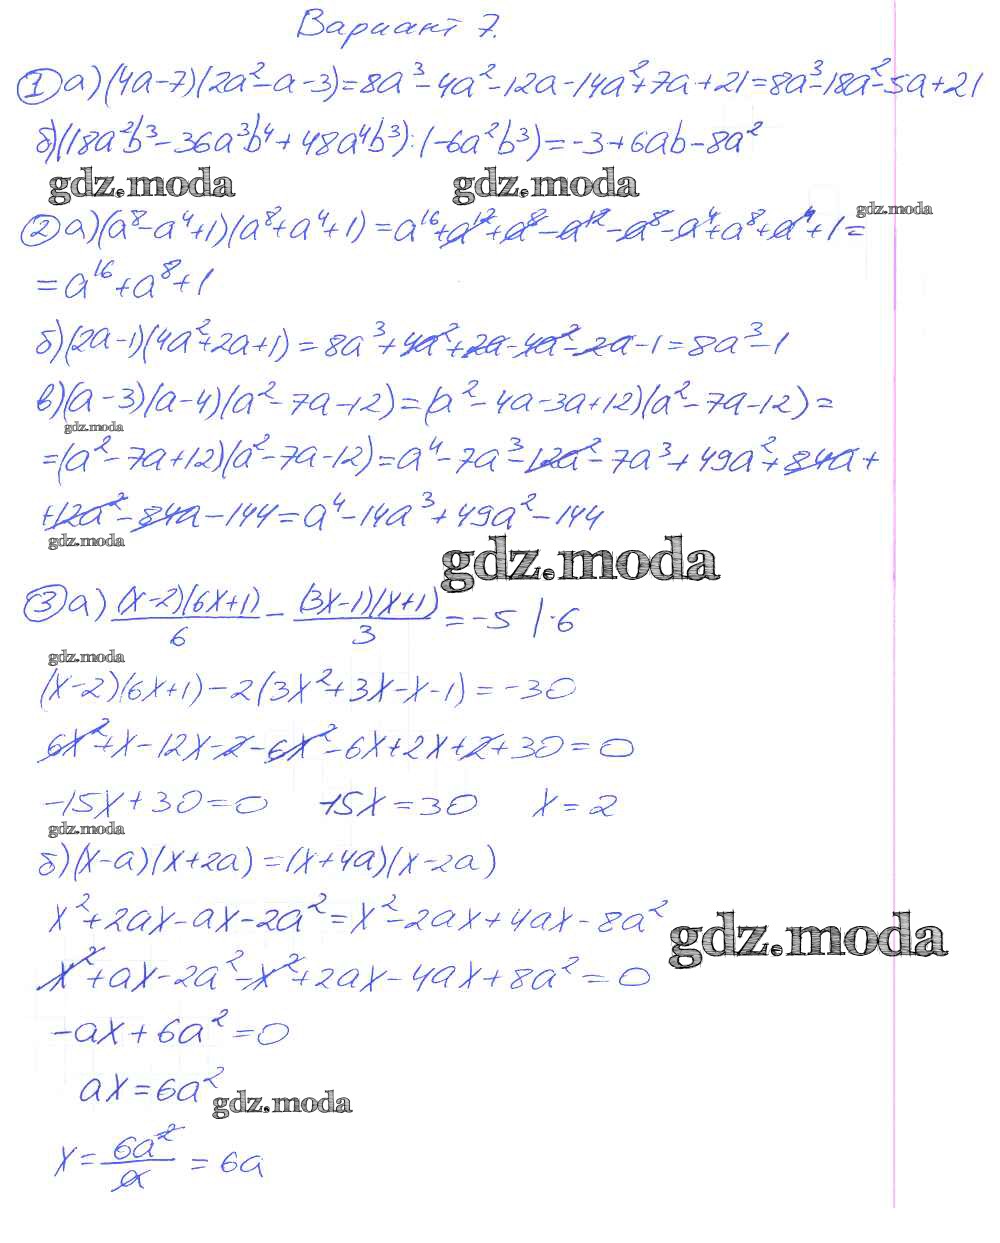 Вариант 7.
① а) (4a-7)(2a²-a-3)=8a³-4a²-12a-14a²+7a+21=8a³-18a²-5a+21
б) (18a²b³-36a³b⁴+48a⁴b³):(-6a²b³)=-3+6ab-8a²
gdz.moda gdz.moda
gdz.moda
② а) (a⁸-a⁴+1)(a⁸+a⁴+1)=a¹⁶+a¹²+a⁸-a¹²-a⁸-a⁴+a⁸+a⁴+1=
=a¹⁶+a⁸+1
б) (2a-1)(4a²+2a+1)=8a³+4a²+2a-4a²-2a-1=8a³-1
в) (a-3)(a-4)(a²-7a-12)=(a²-4a-3a+12)(a²-7a-12)=
gdz.moda
=(a²-7a+12)(a²-7a-12)=a⁴-7a³-12a²-7a³+49a²+84a+
+12a²-84a-144=a⁴-14a³+49a²-144
gdz.moda gdz.moda
③ а) (x-2)(6x+1)/6 - (3x-1)(x+1)/3 = -5 |·6
gdz.moda
(x-2)(6x+1)-2(3x²+3x-x-1)=-30
6x²+x-12x-2-6x²-6x+2x+2+30=0
-15x+30=0 15x=30 x=2
gdz.moda
б) (x-a)(x+2a)=(x+4a)(x-2a)
x²+2ax-ax-2a²=x²-2ax+4ax-8a²
gdz.moda
x²+ax-2a²-x²+2ax-4ax+8a²=0
-ax+6a²=0
ax=6a²
gdz.moda
x=6a²/a=6a